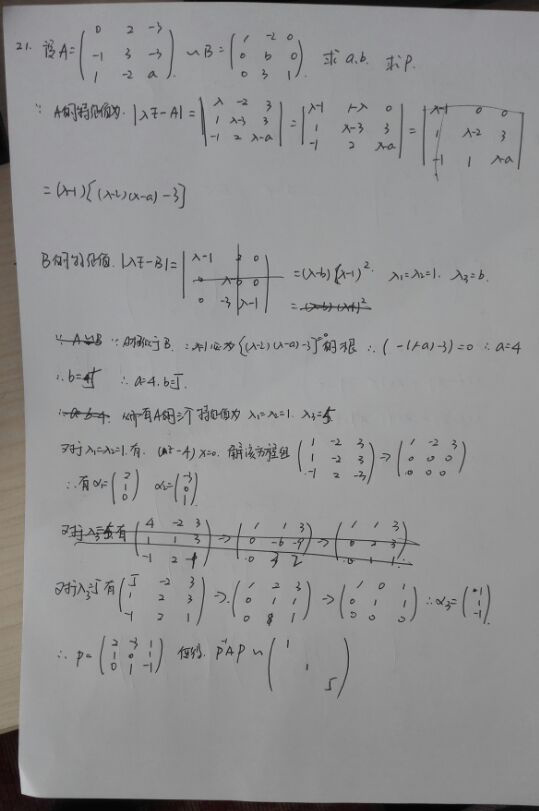 21. 设A=(0 2 -3; -1 3 -3; 1 -2 a) ∽ B=(1 -2 0; 0 b 0; 0 3 1). 求a,b. 求P.
∵ A的特征值为. |λE-A|=|λ -2 3; 1 λ-3 3; -1 2 λ-a|=|λ-1 1-λ 0; 1 λ-3 3; -1 2 λ-a|=|λ-1 0 0; 1 λ-2 3; -1 1 λ-a|
=(λ-1)[(λ-2)(λ-a)-3]
B的特征值. |λE-B|=|λ-1 2 0; 0 λ-b 0; 0 -3 λ-1|=(λ-b)(λ-1)². λ₁=λ₂=1. λ₃=b.
=(λ-b)(λ-1)²
∵ A∽B ∵ A相似于B. ∴ λ=1必为[(λ-2)(λ-a)-3]=0的根 ∴(-(1-a)-3)=0 ∴a=4
∴b=5 ∴a=4. b=5.
∴ a=4 从而有A的三个特征值为 λ₁=λ₂=1. λ₃=5.
对于λ₁=λ₂=1. 有. x=0. 解该方程组 (1 -2 3; 1 -2 3; -1 2 -3)→(1 -2 3; 0 0 0; 0 0 0)
∴有α₁=(2; 1; 0) α₂=(-3; 0; 1)
对于λ₃=5有(4 -2 3; 1 1 3; -1 2 -9)→(1 1 3; 0 -6 -9; 0 3 2)→(1 1 3; 0 2 3; 0 1 1)
对于λ₃=5有(5 -2 3; 1 2 3; -1 2 1)→(1 2 3; 0 1 1; 0 8 1)→(1 0 1; 0 1 1; 0 0 0) ∴α₃=(1; 1; -1)
∴ P=(2 -3 1; 1 0 1; 0 1 -1) 使得. P⁻¹AP∽(1 1 5)